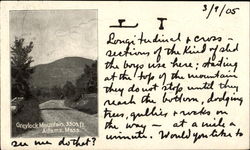 3/9/05
Longitudinal & cross-
sections of the kind of sled
the boys use here; starting
at the top of the mountain
they do not stop until they
reach the bottom, dodging
trees, gullies & rocks on
the way — at a mile a
minute. Would you like to
see me do that?
Greylock Mountain, 3505 ft.
Adams, Mass.